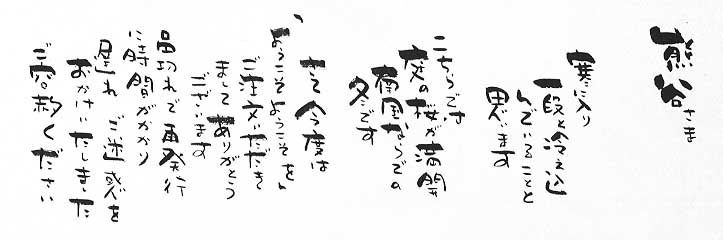 熊谷さま
寒に入り
一段と冷え込
んでいることと
思います
こちらでは
庭の桜が満開
南国ならでの
冬です
さて今度は
「ようこそようこそ」を
ご注文いただき
まして ありがとう
ございます
品切れで再発行
に時間がかかり
遅れ ご迷惑を
おかけいたしました
ご容赦ください